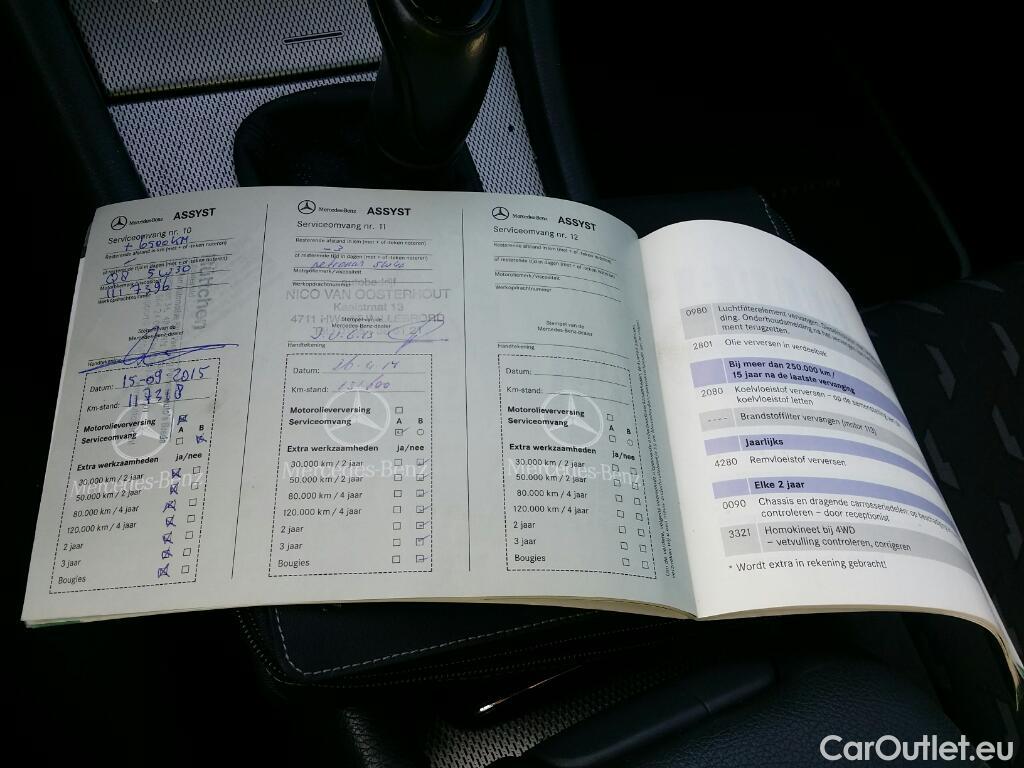 Mercedes-Benz ASSYST
Serviceomvang nr. 10
+ 6500 KM
Resterende afstand in km (met + of -teken noteren)
of resterende tijd in dagen (met + of -teken noteren)
Q8 5W30
Motoroliemerk/viscositeit
1117396
Werkopdrachtnummer
Stempel van de
Mercedes-Benz-dealer
Handtekening
Datum: 15-09-2015
Km-stand:
Motorolieverversing
A B
Serviceomvang
Extra werkzaamheden ja/nee
30.000 km / 2 jaar
50.000 km / 2 jaar
80.000 km / 4 jaar
120.000 km / 4 jaar
2 jaar
3 jaar
Bougies
Mercedes-Benz
Mercedes-Benz ASSYST
Serviceomvang nr. 11
Resterende afstand in km (met + of -teken noteren)
-3
of resterende tijd in dagen (met + of -teken noteren)
Motoroliemerk/viscositeit
Werkopdrachtnummer
NICO VAN OOSTERHOUT
13
4711
Stempel van de
Mercedes-Benz-dealer
Handtekening
Datum:
Km-stand:
Motorolieverversing
A B
Serviceomvang
Extra werkzaamheden ja/nee
30.000 km / 2 jaar
50.000 km / 2 jaar
80.000 km / 4 jaar
120.000 km / 4 jaar
2 jaar
3 jaar
Bougies
Mercedes-Benz
Mercedes-Benz ASSYST
Serviceomvang nr. 12
Resterende afstand in km (met + of -teken noteren)
of resterende tijd in dagen (met + of -teken noteren)
Motoroliemerk/viscositeit
Werkopdrachtnummer
Stempel van de
Mercedes-Benz-dealer
Handtekening
Datum:
Km-stand:
Motorolieverversing
A B
Serviceomvang
Extra werkzaamheden ja/nee
30.000 km / 2 jaar
50.000 km / 2 jaar
80.000 km / 4 jaar
120.000 km / 4 jaar
2 jaar
3 jaar
Bougies
Mercedes-Benz
0980 Luchtfilterelement vervangen.
ding. Onderhoudsmelding na het vervangen
ment terugzetten.
2801 Olie verversen in verdeelbak
Bij meer dan 250.000 km /
15 jaar na de laatste vervanging
2080 Koelvloeistof verversen – op de samenstelling van de
koelvloeistof letten
---- Brandstoffilter vervangen (motor 113)
Jaarlijks
4280 Remvloeistof verversen
Elke 2 jaar
0090 Chassis en dragende carrosseriedelen: op
controleren – door receptionist
3321 Homokineet bij 4WD
– vetvulling controleren, corrigeren
* Wordt extra in rekening gebracht!
CarOutlet.eu